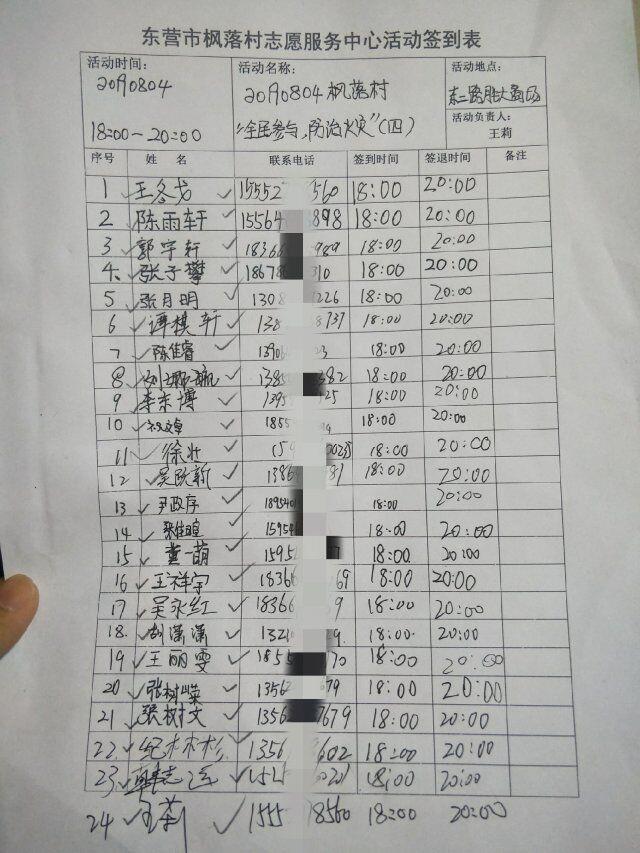 东营市枫落村志愿服务中心活动签到表
活动时间： 活动名称： 活动地点：
20190804 20190804枫落村
18:00-20:00 "全民参与,防治火灾"(四) 东二路胜大商场
活动负责人：
王莉
序号 姓 名 联系电话 签到时间 签退时间 备注
1 王冬戈 15552 560 18:00 20:00
2 陈雨轩 15564 898 18:00 20:00
3 郭宇轩 18366 989 18:00 20:00
4 张子攀 18678 310 18:00 20:00
5 张月明 1308 226 18:00 20:00
6 谭棋轩 138 8737 18:00 20:00
7 陈佳睿 1390 23 18:00 20:00
8 138 382 18:00 20:00
9 李东博 1395 125 18:00 20:00
10 1855 18:00 20:00
11 徐壮 159 0023 18:00 20:00
12 吴欧新 1386 81 18:00 20:00
13 尹政存 1895401 18:00 20:00
14 1595 18:00 20:00
15 董一萌 1595 7 18:00 20:00
16 王祥宇 18366 169 18:00 20:00
17 吴永红 18366 9 18:00 20:00
18 赵潇潇 1321 29 18:00 20:00
19 王丽雯 1855 70 18:00 20:00
20 张树嵘 1356 679 18:00 20:00
21 张树文 1356 7679 18:00 20:00
22 纪林杉 1356 3602 18:00 20:00
23 18:00 20:00
24 王莉 1555 78560 18:00 20:00